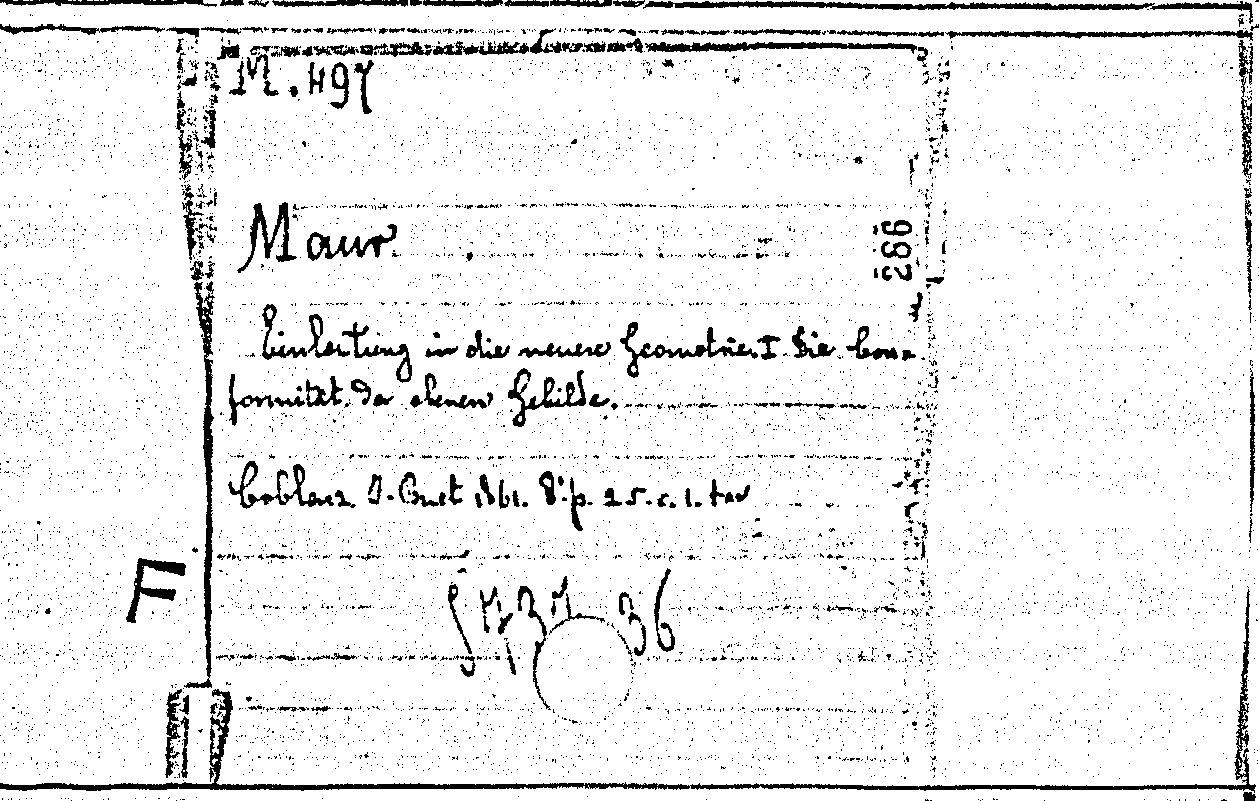 M. 497
Maur.
266
Einleitung in die neuere Geometrie. I Die Con=
formität der ebenen Gebilde.
Coblenz. 1861. 8° p. 25. c. 1. tav
F
36